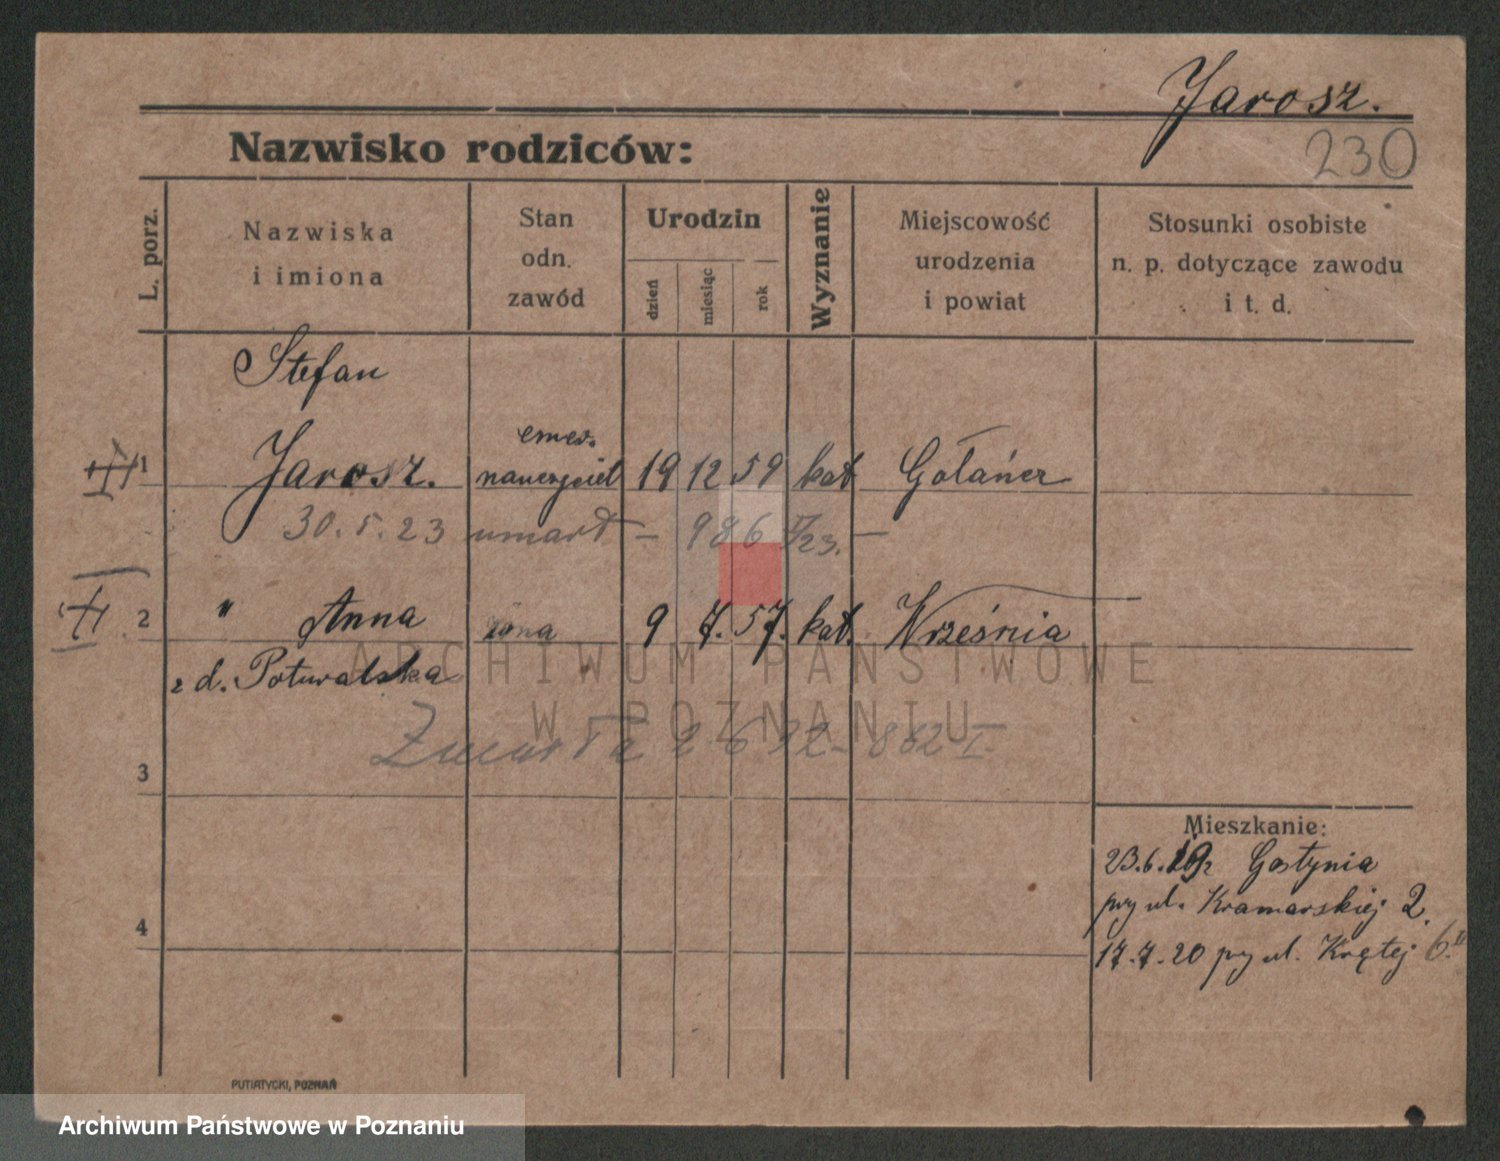 Jarosz.
230
Nazwisko rodziców:
L. porz.
Nazwiska
i imiona
Stan
odn.
zawód
Urodzin
dzień
miesiąc
rok
Wyznanie
Miejscowość
urodzenia
i powiat
Stosunki osobiste
n. p. dotyczące zawodu
i t. d.
Stefan
1 Jarosz. emer. nauczyciel 19 12 59 kat Gołańcz
30.5.23 umarł – 986 V/23. –
2 " Anna żona 9 7. 57. kat. Września
z d. Poturalska
Zmarła 2 6 32 - 862 I.
3
4
Mieszkanie:
23.6.19 z Gostynia
przy ul. Kramarskiej 2.
17.7.20 przy ul. Krętej 6.II
PUTIATYCKI, POZNAŃ
ARCHIWUM PAŃSTWOWE
W POZNANIU
Archiwum Państwowe w Poznaniu